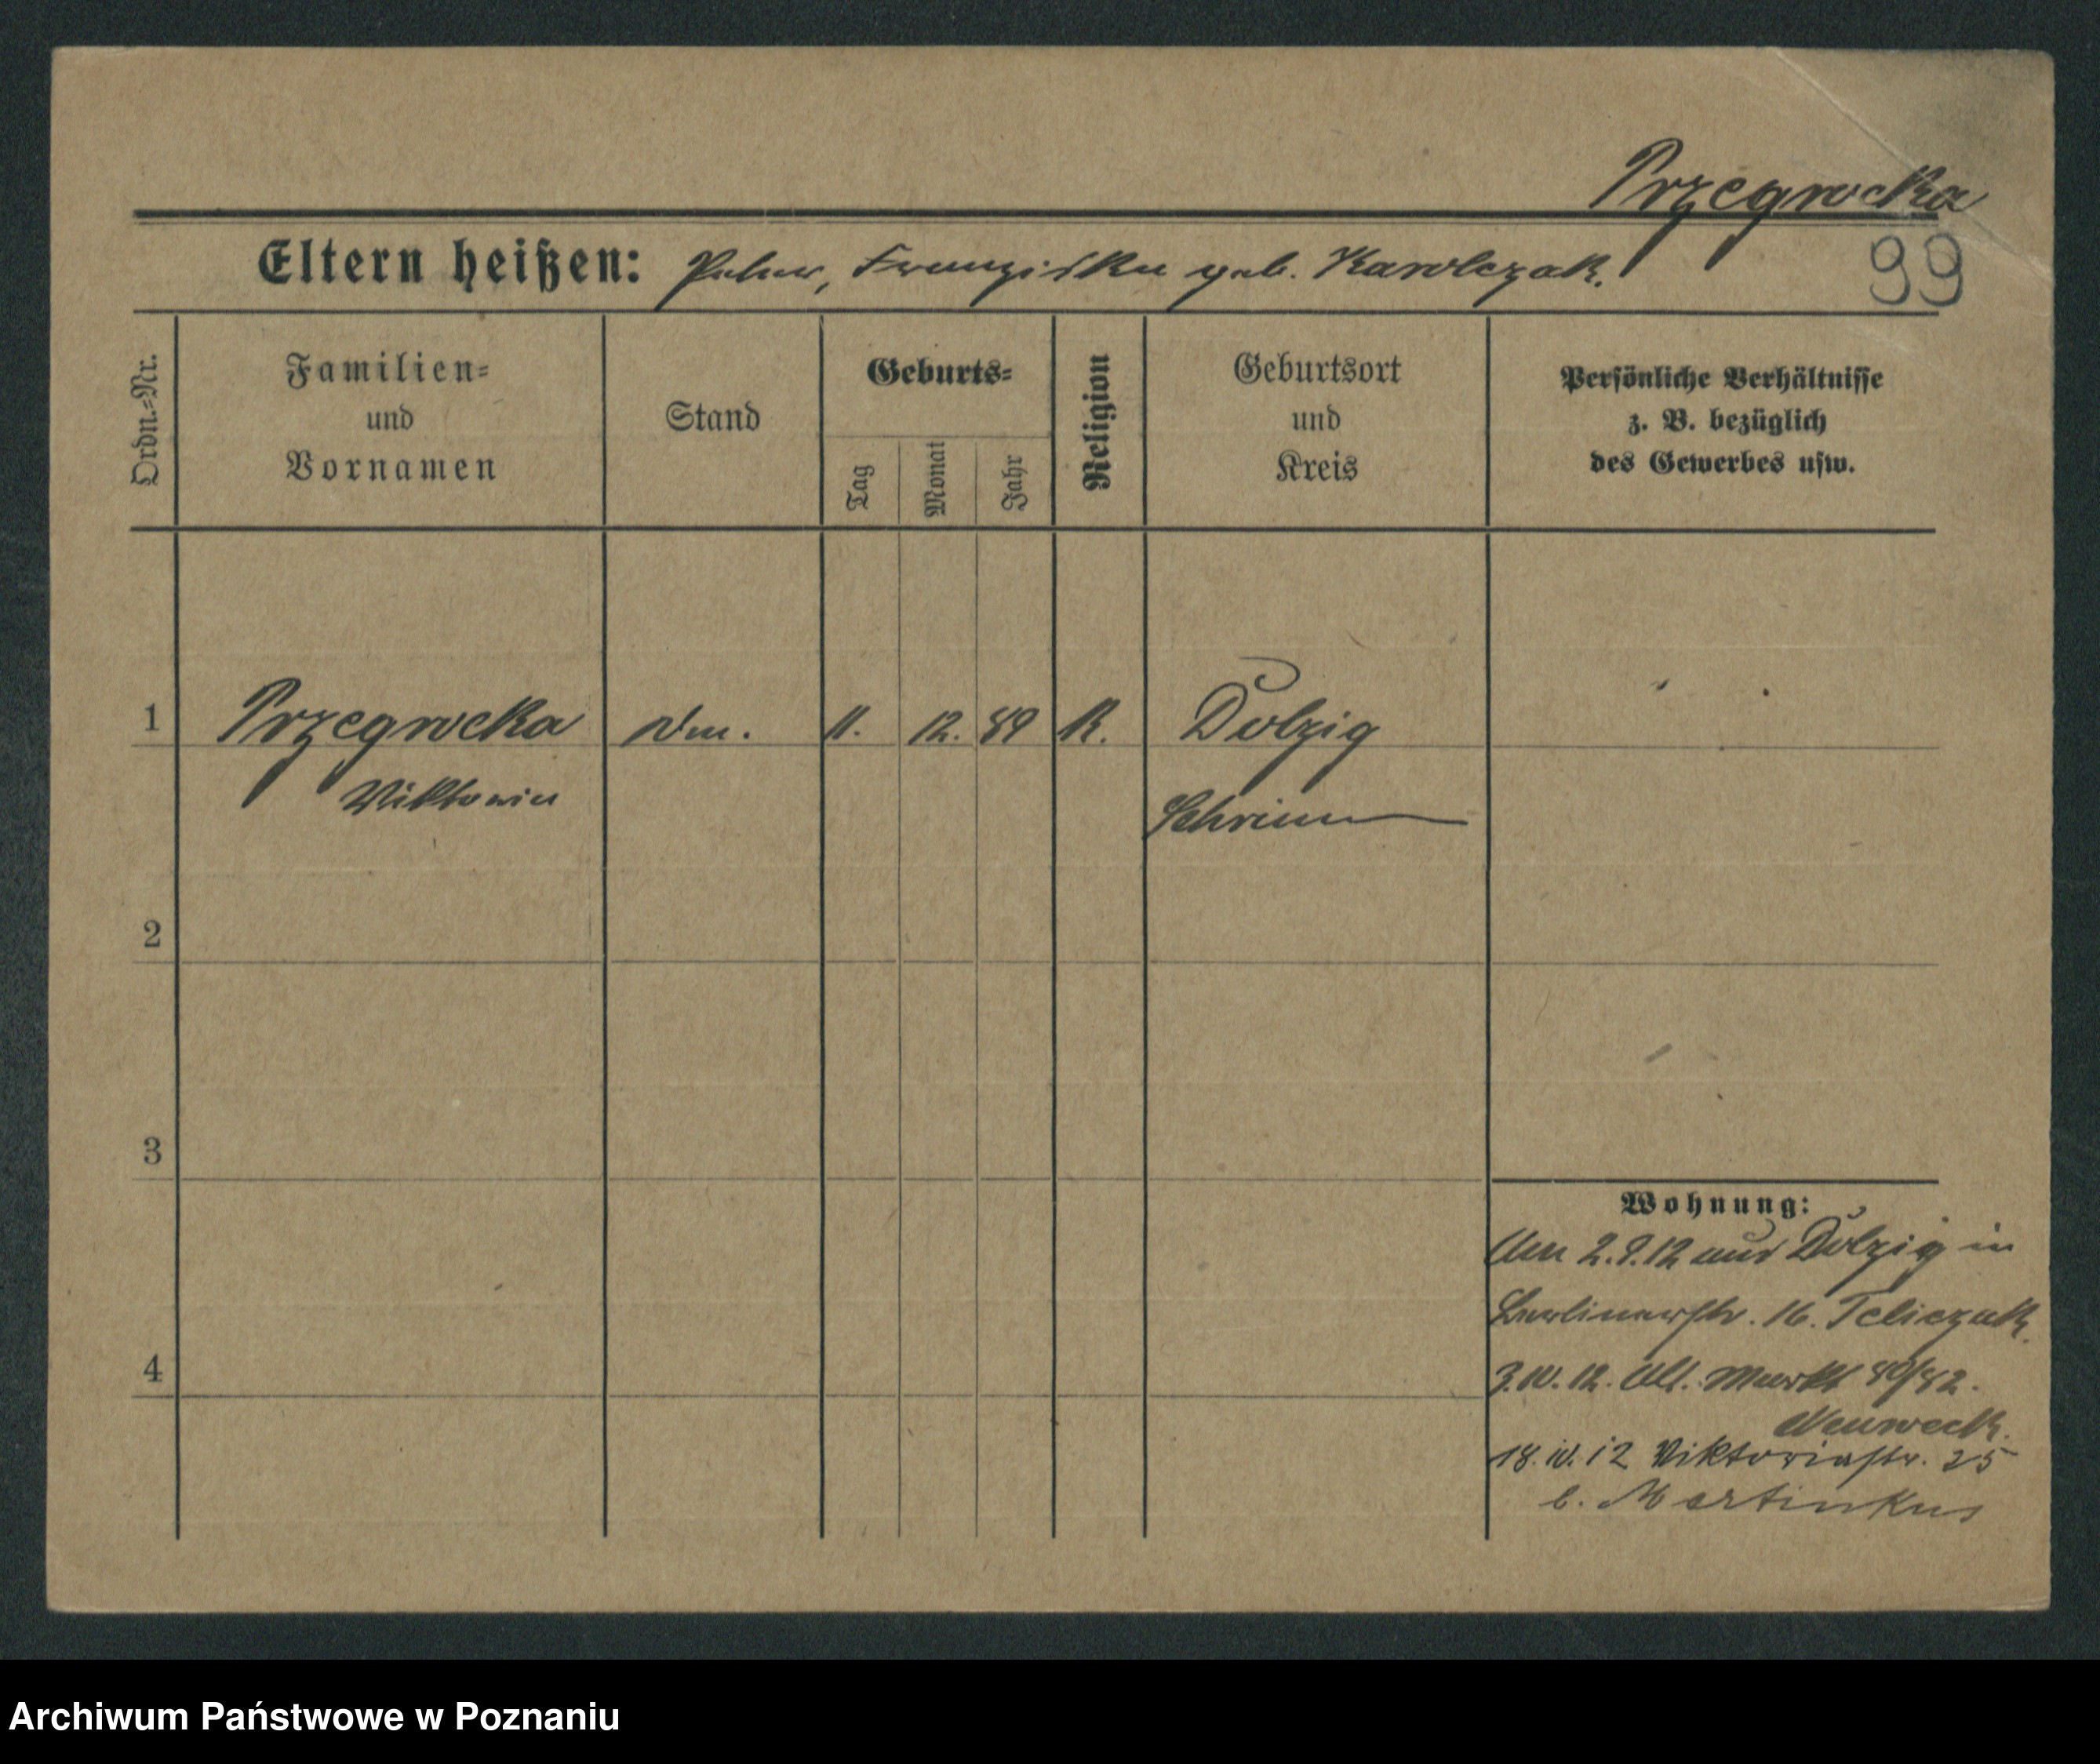 Przegrocka
Eltern heißen: Peter, Franziska geb. Karolczak.
99
Ordn.=Nr.
Familien=
und
Vornamen
Stand
Geburts=
Tag
Monat
Jahr
Religion
Geburtsort
und
Kreis
Persönliche Verhältnisse
z. B. bezüglich
des Gewerbes usw.
1 Przegrocka 11. 12. 89 K. Dolzig
Viktoria Schrimm
2
3
4
Wohnung:
Am 2.9.12 aus Dolzig in
Berlinerstr. 16.
3.10.12. Alt. Markt 80/82.
18.10.12 Viktoriastr. 25
b. Martinkus
Archiwum Państwowe w Poznaniu